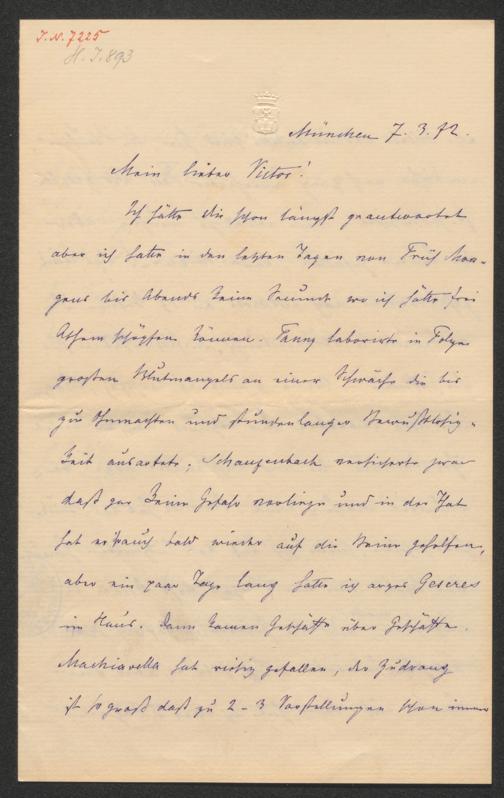 J.N. 7225
H. I. 893
München 7. 3. 72.
Mein lieber Victor!
Ich hätte dir schon längst geantwortet
aber ich hatte in den letzten Tagen von Früh Mor-
gens bis Abends keine Secunde wo ich hätte frei
Athem schöpfen können. Fanny laborirte in Folge
großen Blutmangels an einer Schwäche die bis
zu Ohnmachten und stundenlanger Bewußtlosig-
keit ausartete; Schanzenbach versicherte zwar
daß gar keine Gefahr vorliege und in der That
hat er's auch bald wieder auf die Beine geholfen,
aber ein paar Tage lang hatte ich arges Geseres
im Haus. Dann kamen Geschäfte über Geschäfte.
Machiavella hat riesig gefallen, der Zudrang
ist so groß daß zu 2 - 3 Vorstellungen schon immer